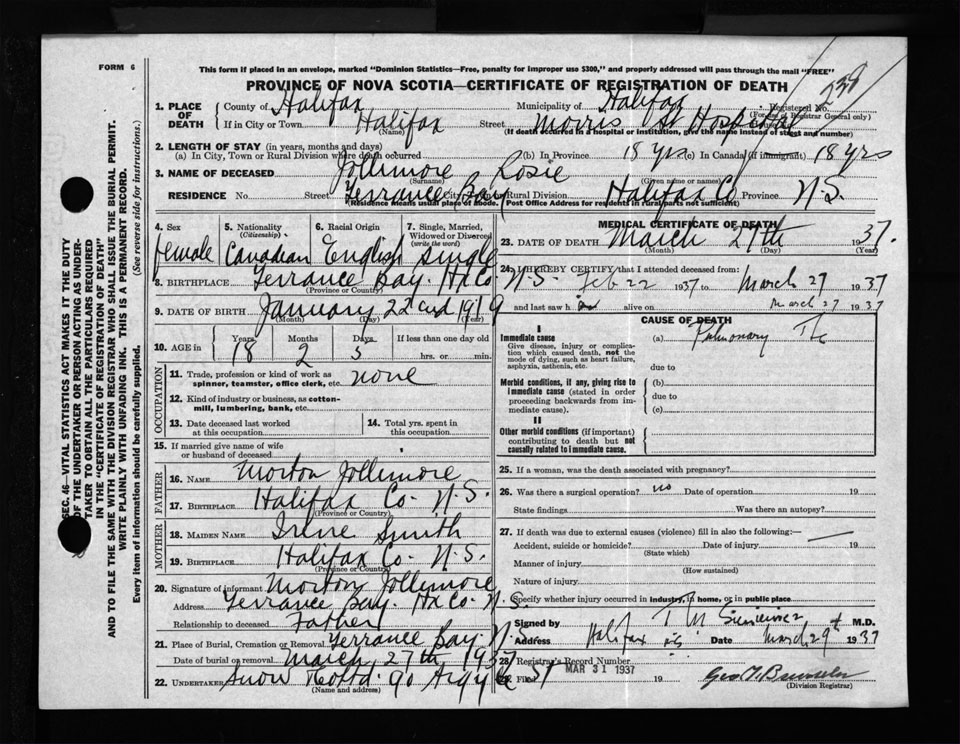 FORM 6
This form if placed in an envelope, marked "Dominion Statistics—Free, penalty for improper use $300," and properly addressed will pass through the mail "FREE"
PROVINCE OF NOVA SCOTIA—CERTIFICATE OF REGISTRATION OF DEATH
238
1. PLACE OF DEATH County of Halifax Municipality of Halifax Registered No.
(For use of Registrar General only)
If in City or Town Halifax Street Morris St Hospital
(Name) (If death occurred in a hospital or institution, give the name instead of street and number)
2. LENGTH OF STAY (in years, months and days)
(a) In City, Town or Rural Division where death occurred (b) In Province 18 yrs (c) In Canada (if immigrant) 18 yrs
3. NAME OF DECEASED Jollimore Rosie
(Surname) (Given name or names)
RESIDENCE No. Street Terrance Bay City, Town or Rural Division Halifax Co Province N.S.
(Residence Means usual place of abode. Post Office Address for residents in rural parts not sufficient)
4. Sex 5. Nationality (Citizenship) 6. Racial Origin 7. Single, Married, Widowed or Divorced (write the word)
female Canadian English single
8. BIRTHPLACE Terrance Bay. Hx Co N.S
(Province or Country)
9. DATE OF BIRTH January 22nd 1919
(Month) (Day) (Year)
10. AGE in Years Months Days If less than one day old
18 2 5 hrs. or min.
OCCUPATION
11. Trade, profession or kind of work as spinner, teamster, office clerk, etc. none
12. Kind of industry or business, as cotton-mill, lumbering, bank, etc.
13. Date deceased last worked at this occupation 14. Total yrs. spent in this occupation
15. If married give name of wife or husband of deceased
FATHER
16. NAME Morton Jollimore
17. BIRTHPLACE Halifax Co. N.S.
(Province or Country)
MOTHER
18. MAIDEN NAME Irene Smith
19. BIRTHPLACE Halifax Co. N.S.
(Province or Country)
20. Signature of informant Morton Jollimore
Address Terrance Bay. Hx Co. N.S.
Relationship to deceased Father
21. Place of Burial, Cremation or Removal Terrance Bay. N.S
Date of burial or removal March 27th 1937
22. UNDERTAKER Snow 90 Argyle
(Name and address)
MEDICAL CERTIFICATE OF DEATH
23. DATE OF DEATH March 27th 1937.
(Month) (Day) (Year)
24. I HEREBY CERTIFY that I attended deceased from:
Feb 22 1937 to March 27 1937
and last saw h alive on March 27 1937
CAUSE OF DEATH
I
Immediate cause (a) Pulmonary
Give disease, injury or complication which caused death, not the mode of dying, such as heart failure, asphyxia, asthenia, etc.
due to
Morbid conditions, if any, giving rise to immediate cause (stated in order proceeding backwards from immediate cause).
(b)
due to
(c)
II
Other morbid conditions (if important) contributing to death but not causally related to immediate cause.
25. If a woman, was the death associated with pregnancy?
26. Was there a surgical operation? no Date of operation 19
State findings Was there an autopsy?
27. If death was due to external causes (violence) fill in also the following:—
Accident, suicide or homicide? Date of injury 19
(State which)
Manner of injury
(How sustained)
Nature of injury
Specify whether injury occurred in industry, in home, or in public place
Signed by M.D.
Address Halifax NS Date March 29 1937
28. Registrar's Record Number
MAR 31 1937
Filed 19
(Division Registrar)
SEC. 46—VITAL STATISTICS ACT MAKES IT THE DUTY
OF THE UNDERTAKER OR PERSON ACTING AS UNDER-
TAKER TO OBTAIN ALL THE PARTICULARS REQUIRED
IN THE "CERTIFICATE OF REGISTRATION OF DEATH"
AND TO FILE THE SAME WITH THE DIVISION REGISTRAR WHO SHALL ISSUE THE BURIAL PERMIT.
WRITE PLAINLY WITH UNFADING INK. THIS IS A PERMANENT RECORD.
Every item of information should be carefully supplied. (See reverse side for instructions.)